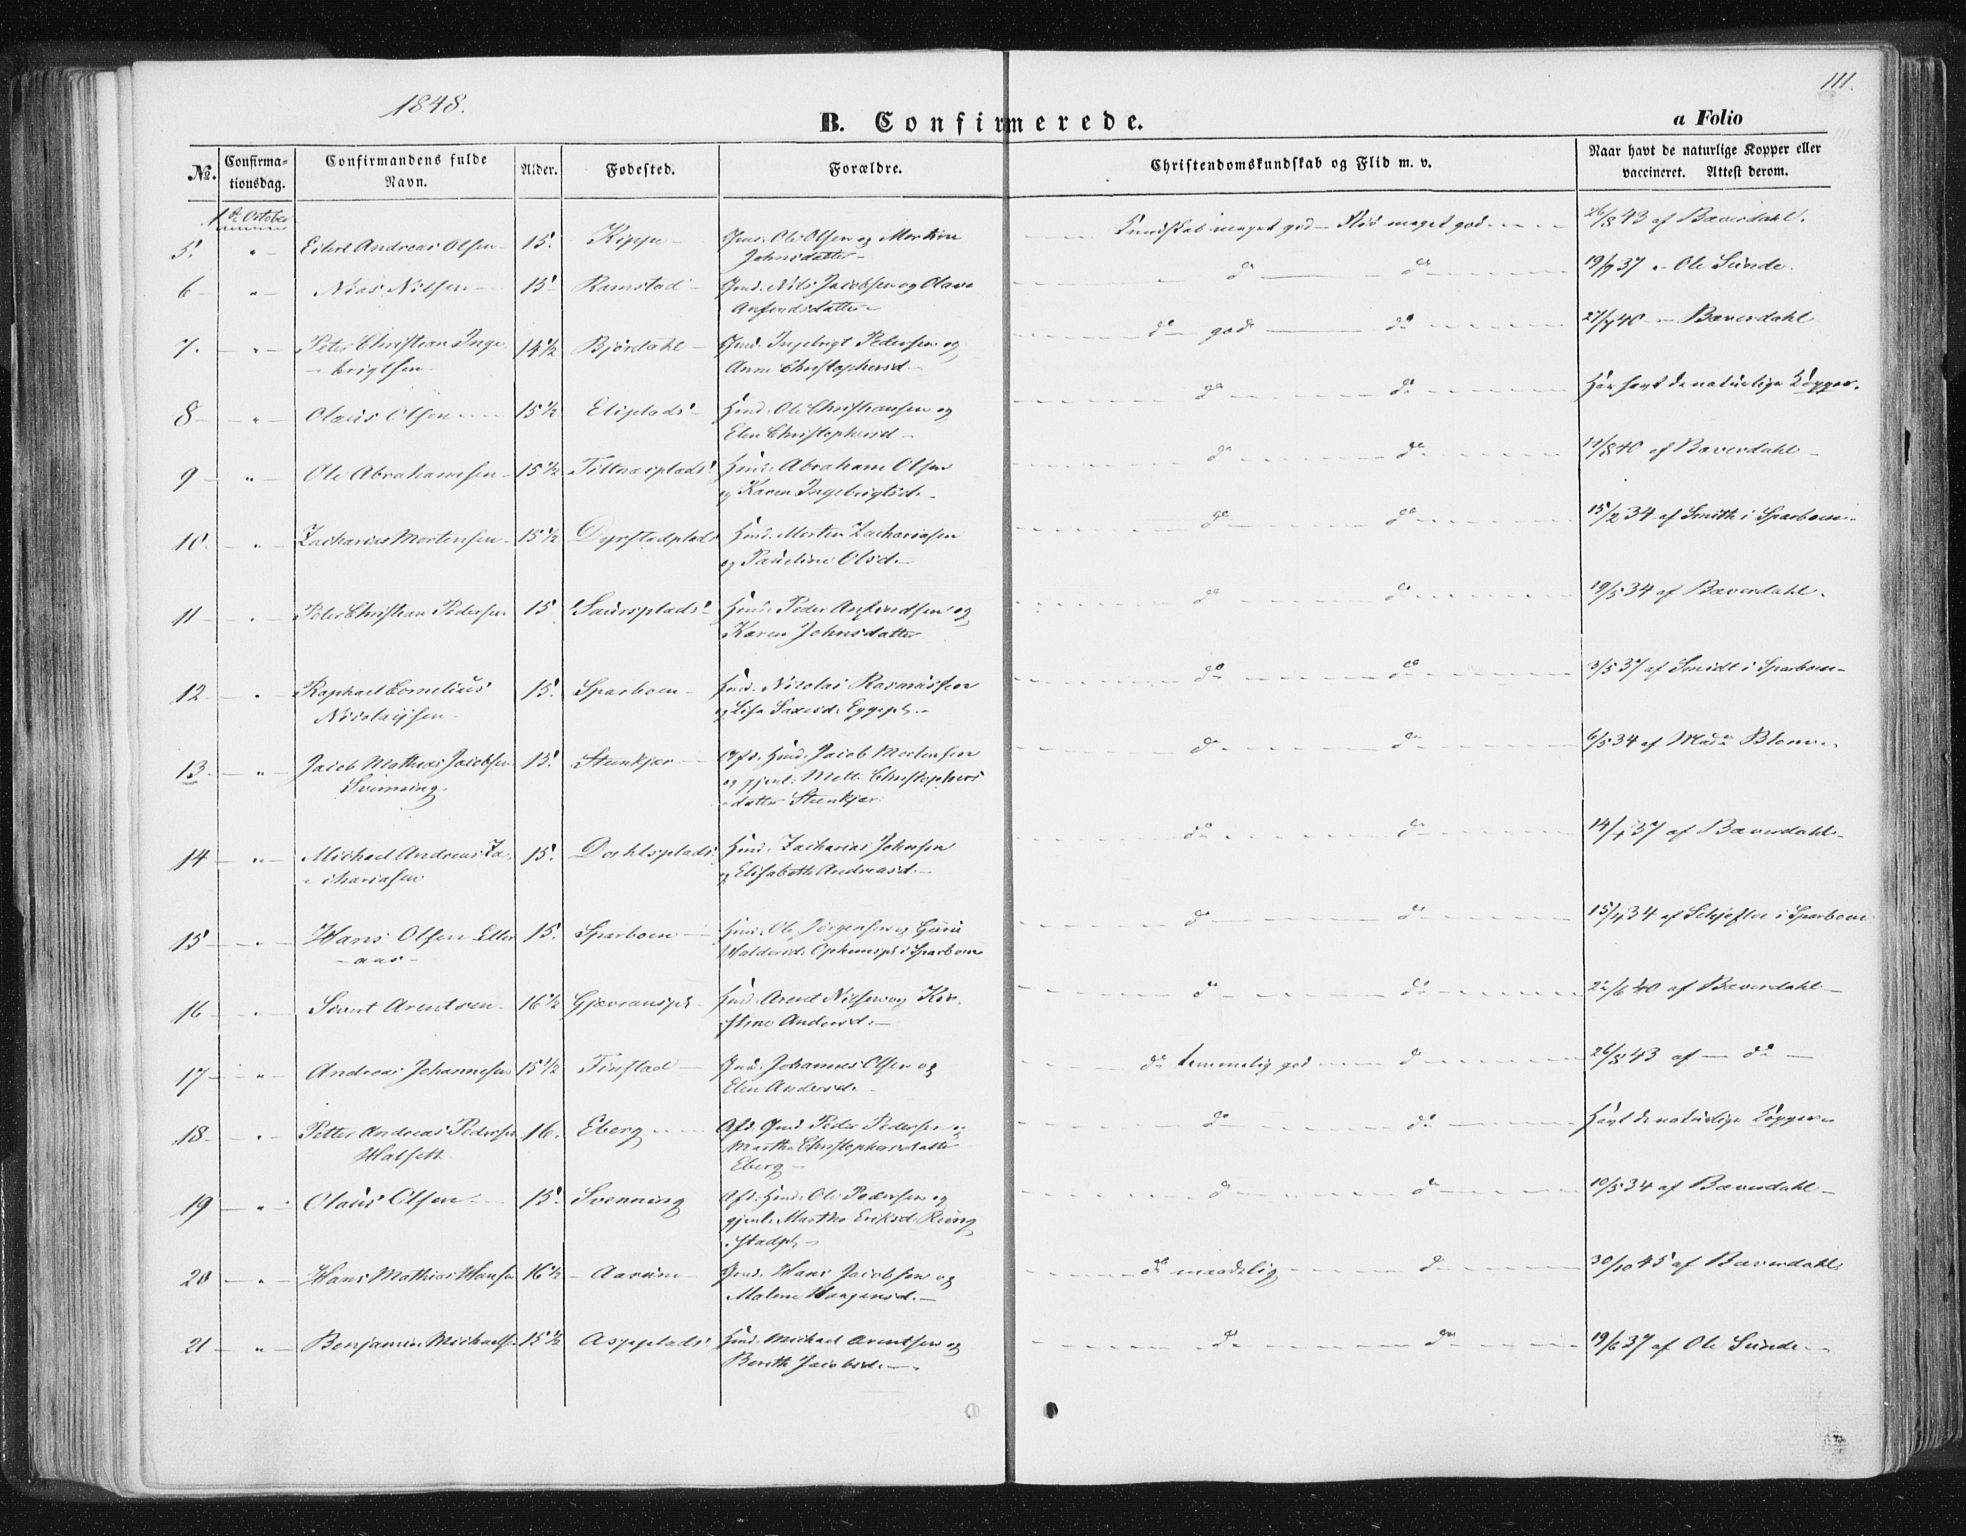 1848.
111.
B. Confirmerede.
a Folio
No. Confirma-tionsdag. Confirmandens fulde Navn. Alder. Fødested. Forældre. Christendomskundskab og Flid m. v. Naar havt de naturlige Kopper eller vaccineret. Attest derom.
1ste October
5. " Eilert Andreas Olsen 15. Gmd. Ole Olsen og Martine Kundskab meget god - Flid meget god 26/8 43 af Bæverdahl.
Johnsdatter
6 " Nils Nilsen 15 Ramstad Gmd. Nils Jacobsen og Olava do do 19/7 37 " Ole Sunde.
Anfindsdatter
7. " Peter Christian Inge 14½ Bjørdahl Gmd. Ingebrigt Pedersen og do god do 27/7 40 - Bæverdahl
brigtsen Anne Christophersd.
8 " Olaus Olsen 15½ Eliplads Hmd. Ole Christiansen og do do Har havt de naturlige Kopper.
Elen Christophersd
9 " Ole Abrahamsen 15½ Hmd. Abraham Olsen do do 14/8 40 af Bæverdahl
og Karen Ingebrigtsd.
10. " Zacharias Mortensen 15½ Dyrstadplads Hmd. Morten Zachariasen do do 15/2 34 af Smith i Sparboen
og Pauline Olsd.
11 " Peter Christian Pedersen 15 Saursplads Hmd. Peder Anfindsen og do do 19/5 34 af Bæverdahl.
Karen Johnsdatter
12 " Raphael Cornelius 15. Sparboen Hmd. Nicolai Rasmussen do do 3/5 37 af Smidt i Sparboen
Nicolaysen og Lisa Saxesd. Eggepl.
13 " Jacob Mathias Jacobsen 15. Steenkjær Afd. Hmd. Jacob Mortensen do do 6/5 34 af Mad. Blom.
Svenning. og gjenl. Mette Christophers
datter Steenkjær
14 " Michael Andreas Za 15. Dahlsplads Hmd. Zacharias Johnsen do do 14/7 37 af Bæverdahl
chariasen og Elisabeth Andreasd.
15 " Hans Olsen Eller 15. Sparboen Hmd. Ole Jørgensen og Guru do do 15/4 34 af Schjefloe i Sparboen
aas Haldorsd. Ophemspl i Sparboen
16 " Sivert Arentsen 16½ Gjævranspl. Hmd. Arent Nielsen og Kir do do 22/6 40 af Bæverdahl
stine Andersd.
17 " Andreas Johannesen 15½ Finstad Gmd. Johannes Olsen og do temmelig god do 26/8 43 af - do -
Elen Andersd.
18 " Petter Andreas Pedersen 16. Eberg Afd. Gmd. Peder Pedersen og do do Havt de naturlige Kopper
Halsett Martha Christophersdatter
Eberg
19 " Olaus Olsen 15. Svenning Afd. Hmd. Ole Pedersen og do do 10/5 34 af Bæverdahl
gjenl. Martha Eriksd. Ring
stadpl.
20 " Hans Mathias Hansen 16½ Gmd. Hans Jacobsen og do maadelig do 30/10 45 af Bæverdahl
Malene Haagensd.
21 " Benjamin Michaels. 15½ Aspeplads Hmd. Michael Arentsen og do do 19/6 37 af Ole Sunde.
Berith Jacobsd.